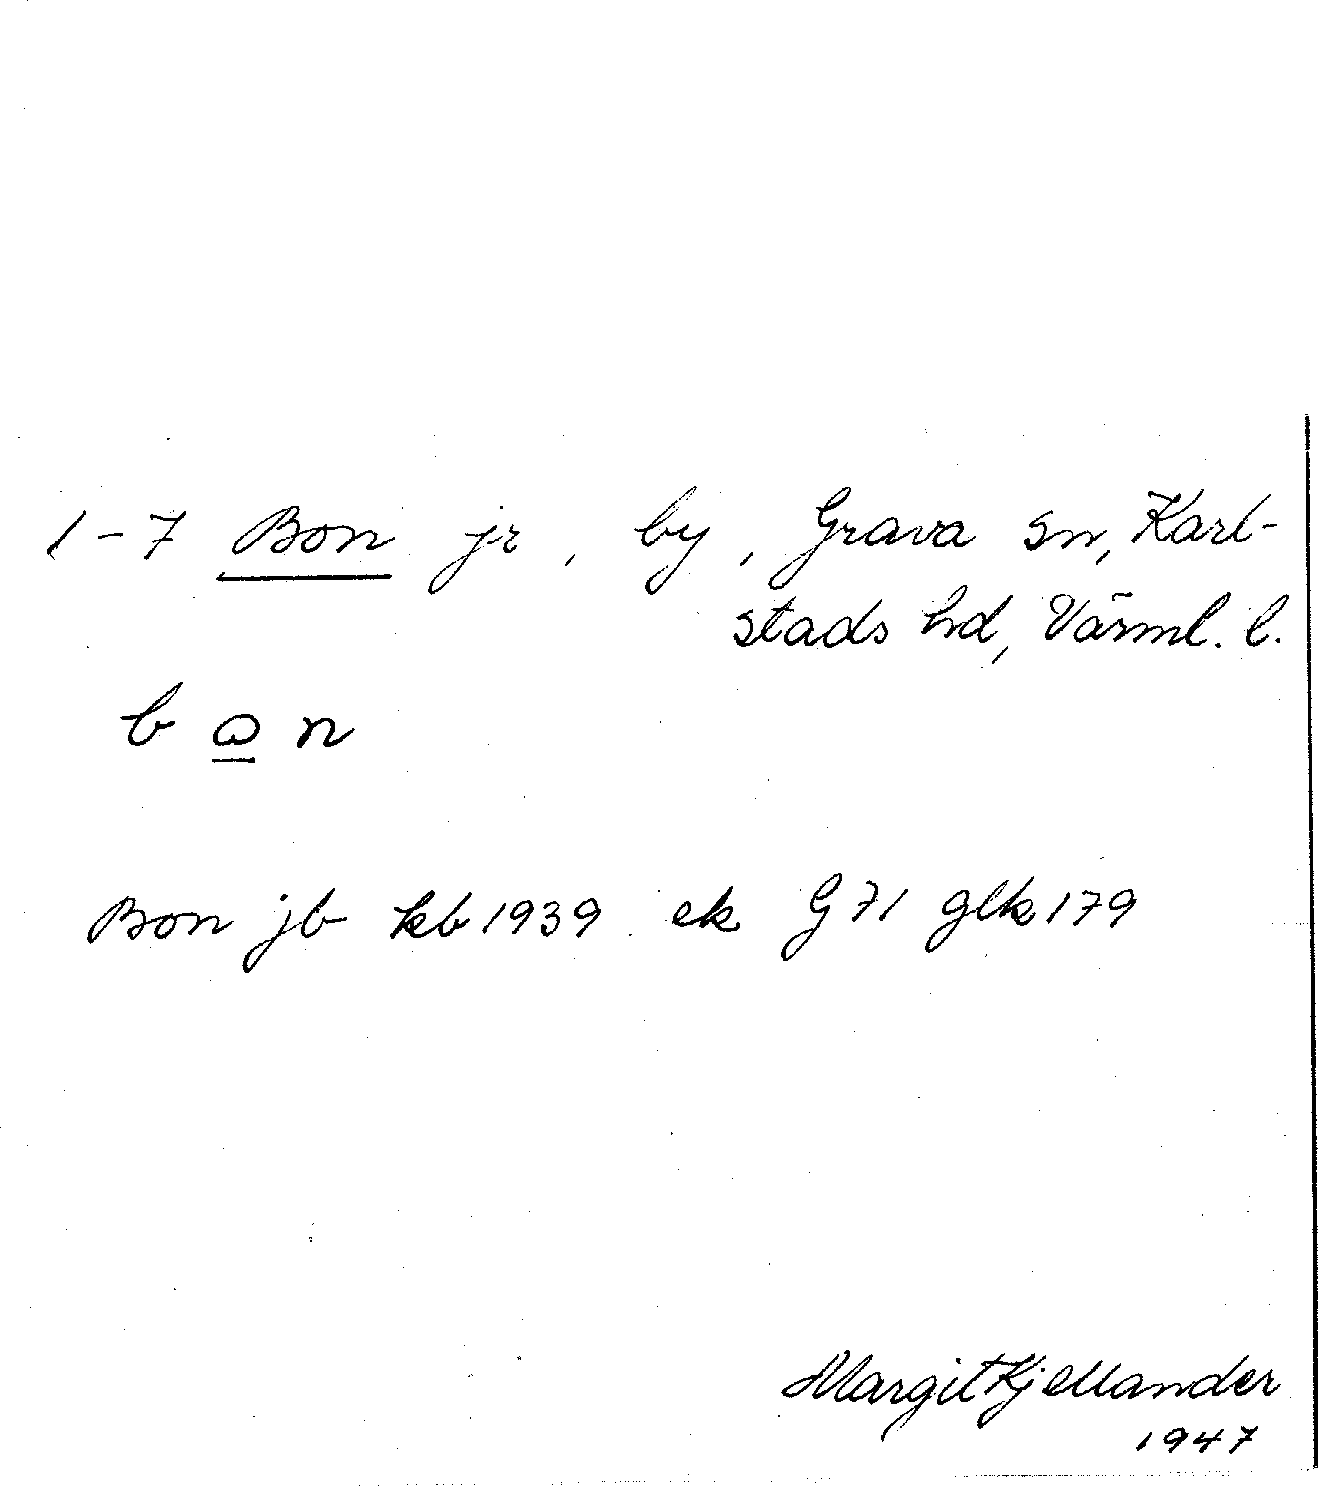 1-7 Bon jr, by, Grava sn, Karl-
stads hd, Värml. l.
b n
Bon jb kb 1939 ek G 71 glk 179
Margit Kjellander
1947